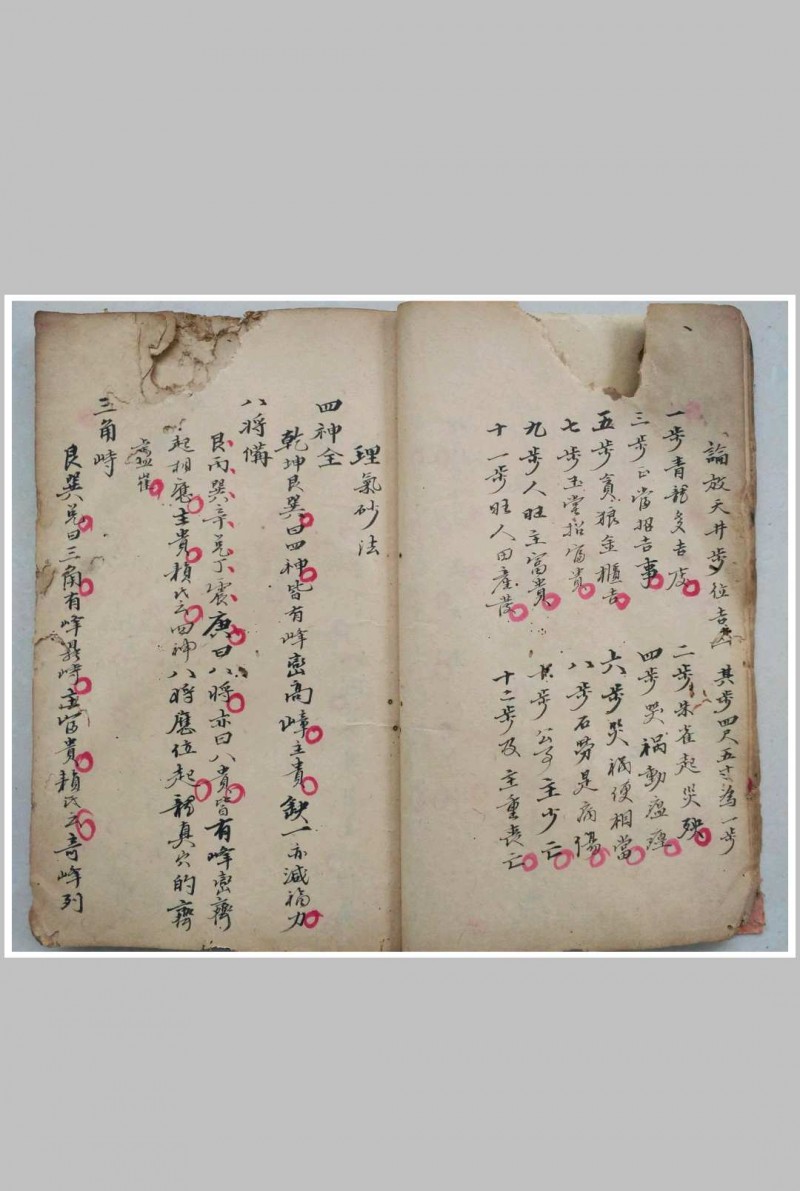 論放天井步位吉凶 其步四尺五寸為一步
一步青龍多吉度 二步朱雀起災殃
三步正當招吉事 四步哭禍動瘟瘴
五步貪狼金櫃吉 六步哭禍便相當
七步玉堂招富貴 八步石勞是病傷
九步人旺主富貴 十步公事主少亡
十一步旺人田產 十二步及主重喪亡
理氣砂法
四神全
乾坤艮巽曰四神皆有峰巒高嶂主貴缺一亦減福力
八將備
艮丙巽辛兌丁震庚曰八將亦曰八貴皆有峰巒齊
起相應主貴賴氏云四神八將應位起龍真穴的齊
崔
三角峙
艮巽兌曰三角有峰鼎峙主富貴賴氏云奇峰列